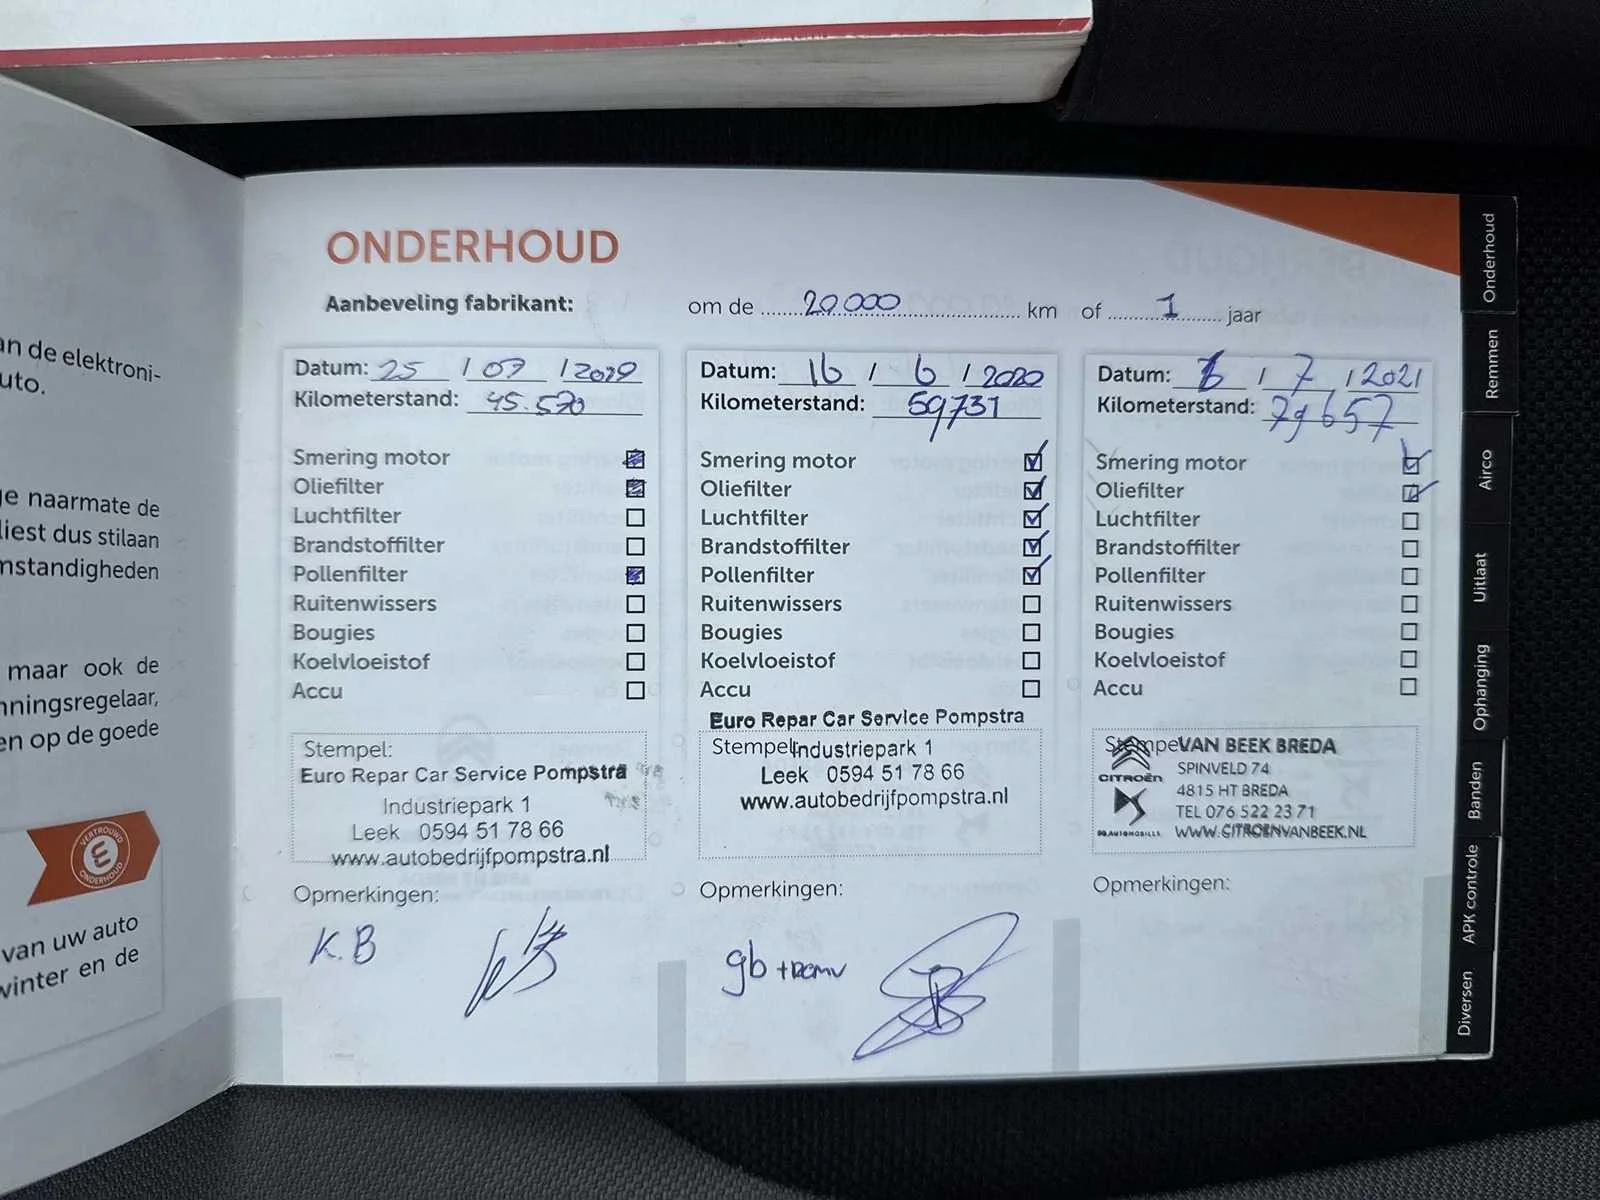 an de elektroni-
uto.
ge naarmate de
liest dus stilaan
mstandigheden
maar ook de
nningsregelaar,
en op de goede
VERTROUWD
ONDERHOUD
van uw auto
winter en de
ONDERHOUD
Aanbeveling fabrikant: om de 20.000 km of 1 jaar
Datum: 25 / 07 / 2019
Kilometerstand: 45.570
Smering motor
Oliefilter
Luchtfilter
Brandstoffilter
Pollenfilter
Ruitenwissers
Bougies
Koelvloeistof
Accu
Stempel:
Euro Repar Car Service Pompstra
Industriepark 1
Leek 0594 51 78 66
www.autobedrijfpompstra.nl
Opmerkingen:
K.B
Datum: 16 / 6 / 2020
Kilometerstand: 59731
Smering motor
Oliefilter
Luchtfilter
Brandstoffilter
Pollenfilter
Ruitenwissers
Bougies
Koelvloeistof
Accu
Euro Repar Car Service Pompstra
Stempel:
Industriepark 1
Leek 0594 51 78 66
www.autobedrijfpompstra.nl
Opmerkingen:
gb + remv
Datum: / 7 / 2021
Kilometerstand: 79657
Smering motor
Oliefilter
Luchtfilter
Brandstoffilter
Pollenfilter
Ruitenwissers
Bougies
Koelvloeistof
Accu
Stempel
VAN BEEK BREDA
CITROËN
SPINVELD 74
4815 HT BREDA
TEL 076 522 23 71
DS AUTOMOBILES
WWW.CITROENVANBEEK.NL
Opmerkingen:
Onderhoud
Remmen
Airco
Uitlaat
Ophanging
Banden
APK controle
Diversen